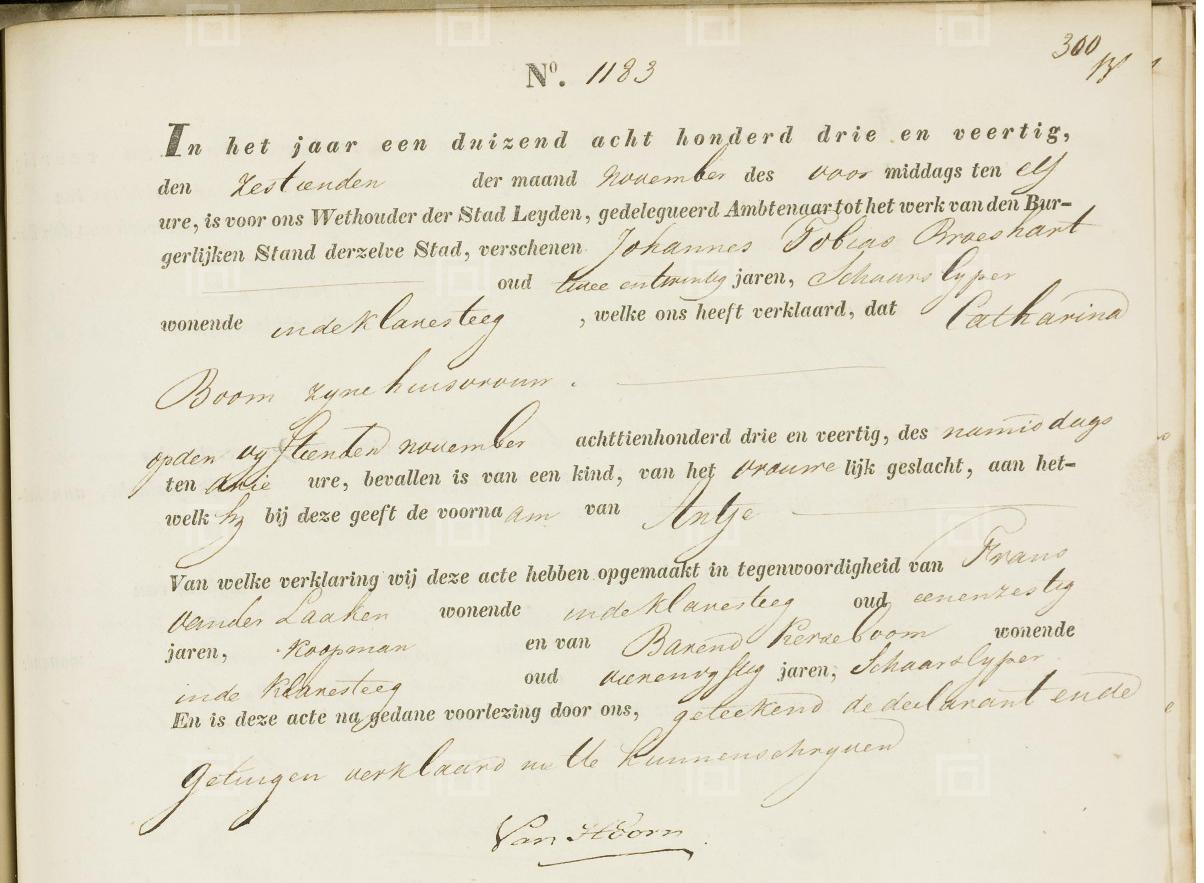 300
Nº. 1183
In het jaar een duizend acht honderd drie en veertig,
den zestienden der maand november des voor middags ten elf
ure, is voor ons Wethouder der Stad Leyden, gedelegueerd Ambtenaar tot het werk van den Bur-
gerlijken Stand derzelve Stad, verschenen Johannes Tobias Broeshart
oud twee entwintig jaren, Schaarslyper
wonende inde Klaresteeg , welke ons heeft verklaard, dat Catharina
Boom zyne huisvrouw.
opden vyftienden november achttienhonderd drie en veertig, des namiddags
ten drie ure, bevallen is van een kind, van het vrouwe lijk geslacht, aan het-
welk hy bij deze geeft de voorna am van Antje
Van welke verklaring wij deze acte hebben opgemaakt in tegenwoordigheid van Frans
vander Laaken wonende inde Klaresteeg oud eenenzestig
jaren, Koopman en van Barend Kerseboom wonende
inde Klaresteeg oud vierenvyftig jaren, Schaarslyper
En is deze acte na gedane voorlezing door ons, geteekend de declarant ende
Getuigen verklaard niette kunnenschryven
Van Hoorn